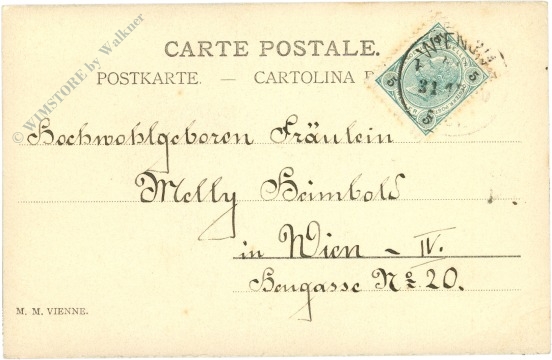 CARTE POSTALE.
POSTKARTE. — CARTOLINA P
Hochwohlgeboren Fräulein
Melly Heimbold
in Wien - IV.
Heugasse No 20.
M. M. VIENNE.
© WIMSTORE by Walkner
5
5
5
31